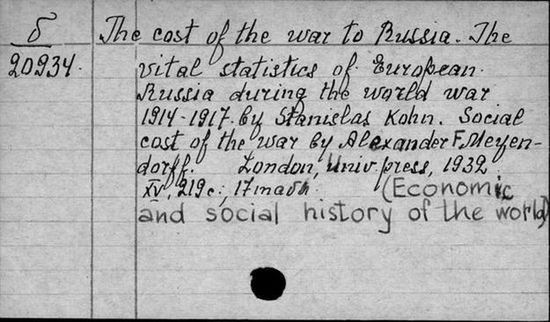 δ
20934.
The cost of the war to Russia. The
vital statistics of European
Russia during the world war
1914-1917. by Stanislas Kohn. Social
cost of the war by Alexander F. Meyen-
dorff. London, Univ. press, 1932
XV, 219 с., 17 табл. (Economic
and social history of the world)